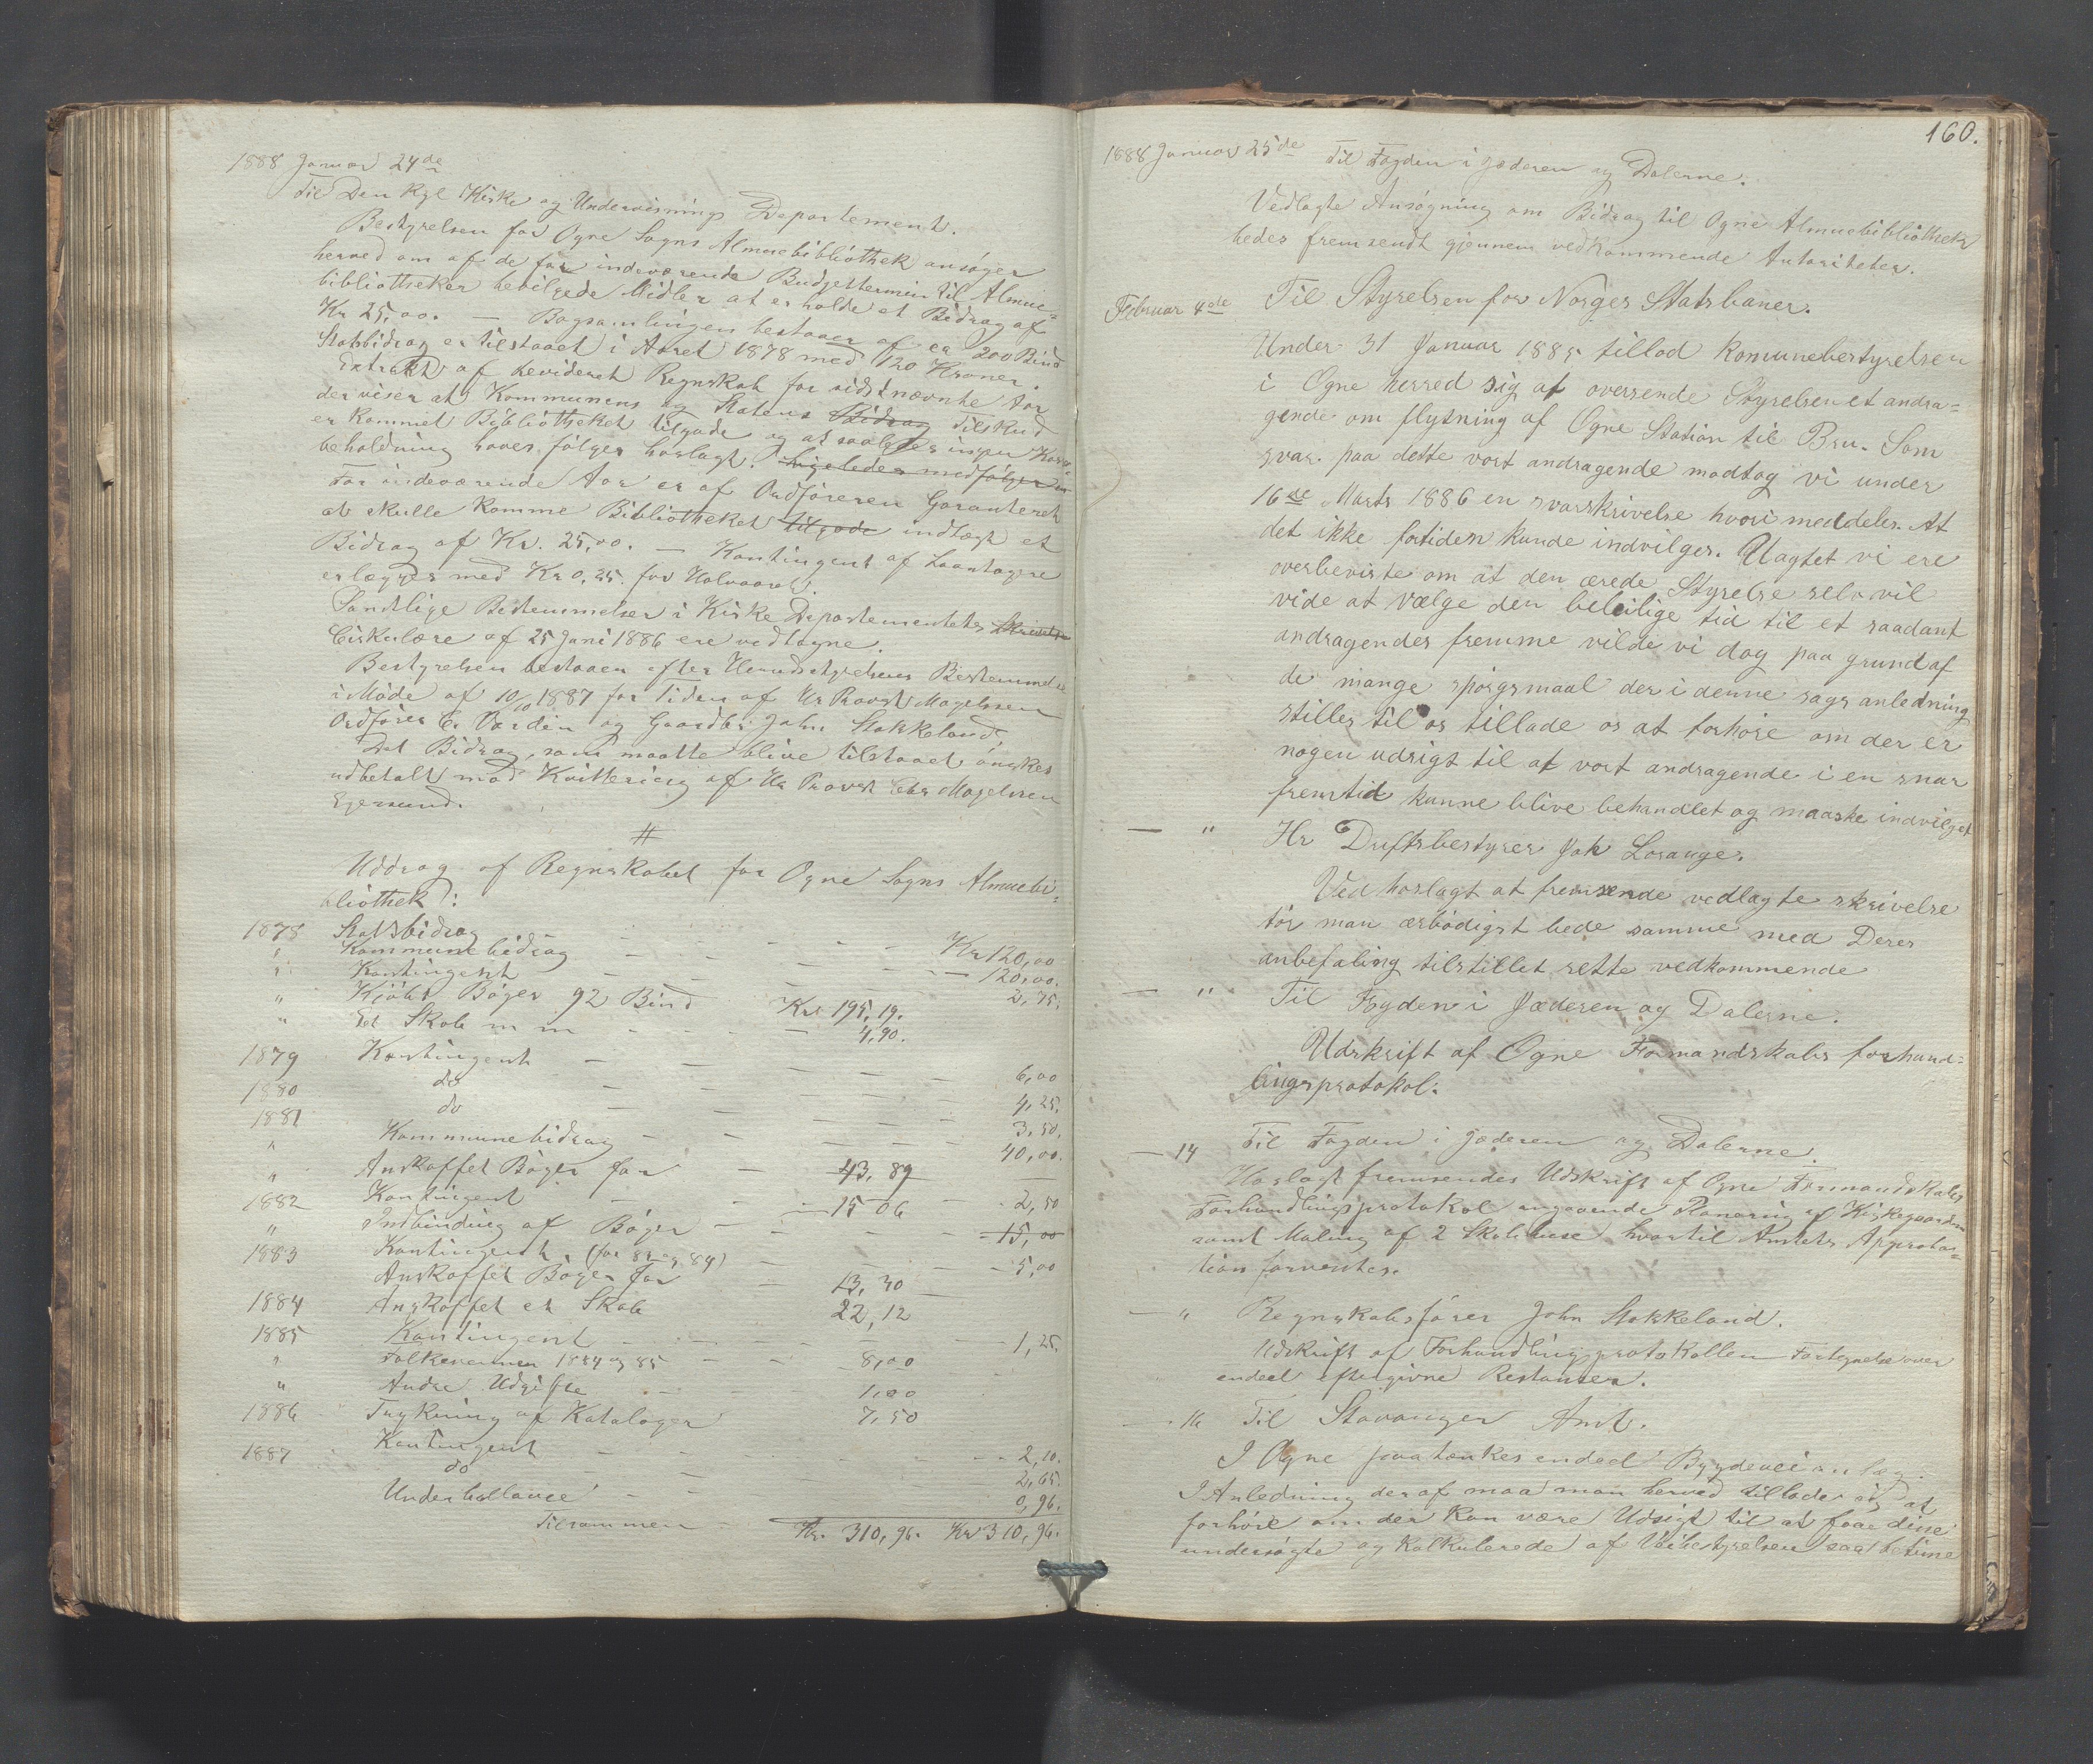 1888 Januar 24de
Til Den Kgl Kirke og Undervisnings Departement.
Bestyrelsen for Ogne Sogns Almuebibliothek ansøger
herved om af de for indeværende Budgettermin til Almue-
bibliotheker bevilgede Midler at erholde et Bidrag af
Kr 25,00. — Bogsamlingen bestaaer af ca 200 Bind
Statsbidrag er tilstaaet i Aaret 1878 med 120 Kroner.
Extrakt af revideret Regnskab for sidstnævnte Aar
der viser at Kommunens og Statens Bidrag Tilskud
er kommet Bibliotheket tilgode og at saaledes ingen Kasse-
beholdning haves følger hoslagt. Ligeledes medfølger
For indeværende Aar er af Ordføreren Garanteret
at skulle komme Bibliotheket tilgode indtægt et
Bidrag af Kr. 25,00. — Kontingent af Laantagere
erlægges med Kr 0,25. for Halvaaret.
Samtlige Bestemmelser i Kirke Departementets
Cirkulære af 25 Juni 1886 ere vedtagne.
Bestyrelsen bestaaer efter Herredsstyrelsens Bestemmelse
i Møde af 10/10 1887 for Tiden af Hr Provst Magelssen
Ordfører Er Værdin og Gaardbr John Stokkeland.
Det Bidrag, som maatte blive tilstaaet ønskes
udbetalt mod Kvittering af Hr Provst Chr Magelssen
Egersund.
#
Uddrag af Regnskabet for Ogne Sogns Almuebi-
bliothek:
1878 Statsbidrag — — — Kr 120,00
" Kommunebidrag — — — 120,00.
" Kontingent — — — 2,75.
" Kjøbt Bøger 92 Bind Kr 195,19.
" Et Skab m m — — — 4,90.
1879 Kontingent — — — 6,00
1880 do — — — 4,25.
1881 do — — — 3,50.
" Kommunebidrag — — — 40,00.
" Anskaffet Bøger for — 43,89 —
1882 Kontingent — — — 2,50
" Indbinding af Bøger — 15 06 — 15,00
1883 Kontingent. (for 82 og 84) — — 5,00
Anskaffet Bøger for — 13,30 —
1884 Anskaffet et Skab 22,12
1885 Kontingent — — — 1,25.
" Folkevennen 1884 og 85 — 8,00
" Andre Udgifte — 1,00
1886 Trykning af Kataloger 7,50
Kontingent — — — 2,10.
1887 do — — — 2,65.
Underballance — — 0,96.
Tilsammen Kr. 310,96. Kr 310,96.
160.
1888 Januar 25de Til Fogden i Jæderen og Dalerne.
Vedlagte Ansøgning om Bidrag til Ogne Almuebibliothek
bedes fremsendt gjennem vedkommende Autoriteter.
Februar 4de Til Styrelsen for Norges Statsbaner.
Under 31 Januar 1885 tillod komunebestyrelsen
i Ogne herred sig at oversende Styrelsen et andra-
gende om flytning af Ogne Station til Bru. Som
svar paa dette vort andragende modtog vi under
16de Marts 1886 en svarskrivelse hvori meddeles. At
det ikke fortiden kunde indvilges. Uagtet vi ere
overbeviste om at den ærede Styrelse selv vil
vide at vælge den beleilige tid til et saadant
andragendes fremme vilde vi dog paa grund af
de mange spørgsmaal der i denne sags anledning
stilles til os tillade os at forhøre om der er
nogen udsigt til at vort andragende i en snar
fremtid kunne blive behandlet og maaske indvilget
— " Hr Driftsbestyrer Joh Lorange.
Ved hoslagt at fremsende vedlagte skrivelse
tør man ærbødigst bede samme med Deres
anbefaling tilstillet rette vedkommende
— " Til Fogden i Jæderen og Dalerne.
Udskrift af Ogne Formandskabs forhand-
lingsprotokol.
— 14 Til Fogden i Jæderen og Dalerne.
Hoslagt fremsendes Udskrift af Ogne Formandskabs
Forhandlingsprotokol angaaende Planering af Kirkegaarden
samt Maling af 2 Skolehuse hvortil Amtets Approba-
tion forventes.
— " Regnskabsfører John Stokkeland.
Udskrift af Forhandlingsprotokollen Fortegnelse over
endeel eftergivne Restanser.
— 16 Til Stavanger Amt.
I Ogne paatænkes endeel Bygdeveianlæg.
I Anledning deraf maa man herved tillade sig at
forhøre om der kan være Udsigt til at faae disse
undersøgte og kalkulerede af Veibestyrelsen saa betime